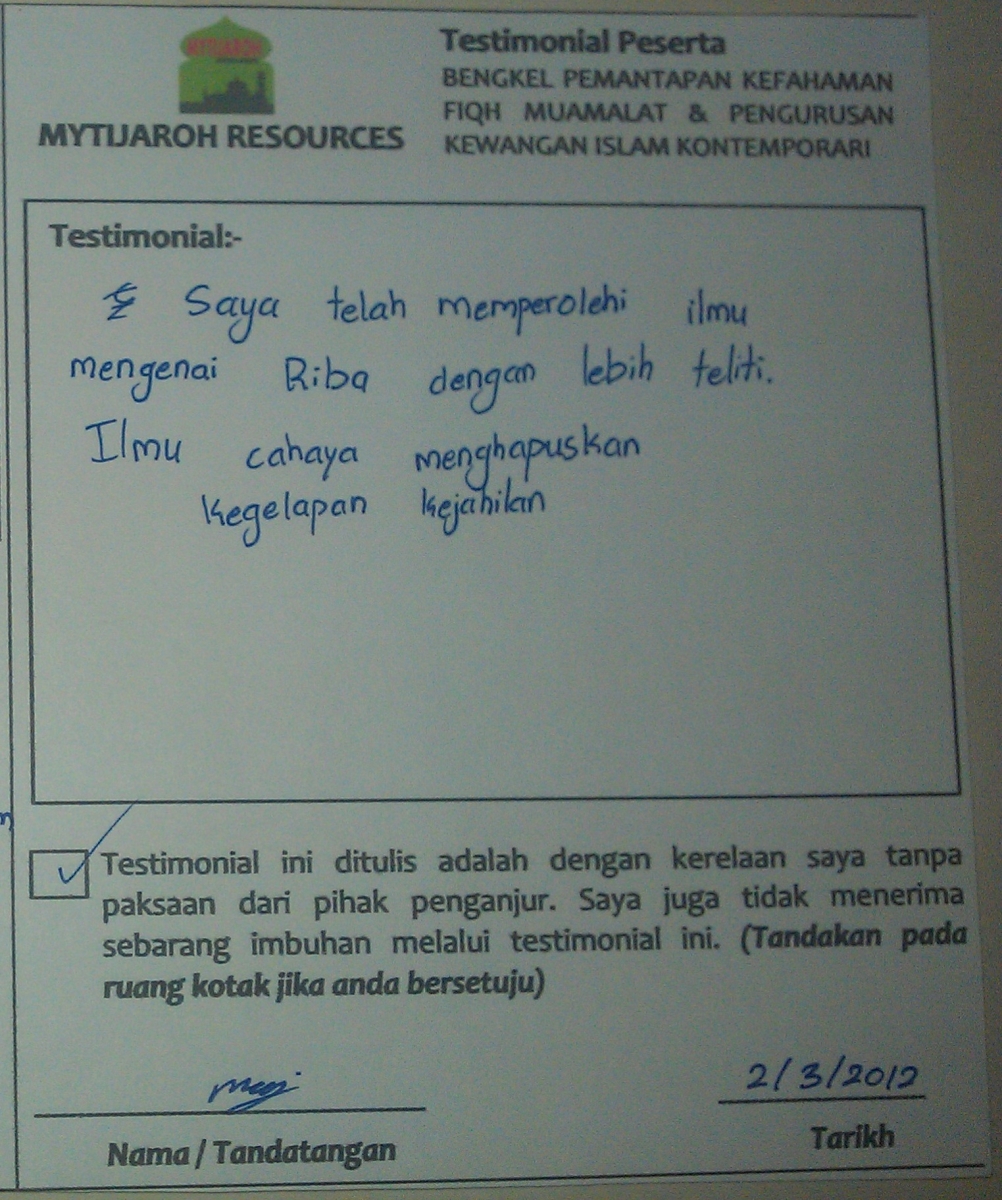 MYTIJAROH
MYTIJAROH RESOURCES
Testimonial Peserta
BENGKEL PEMANTAPAN KEFAHAMAN
FIQH MUAMALAT & PENGURUSAN
KEWANGAN ISLAM KONTEMPORARI
Testimonial:-
Saya telah memperolehi ilmu
mengenai Riba dengan lebih teliti.
Ilmu cahaya menghapuskan
kegelapan kejahilan
Testimonial ini ditulis adalah dengan kerelaan saya tanpa
paksaan dari pihak penganjur. Saya juga tidak menerima
sebarang imbuhan melalui testimonial ini. (Tandakan pada
ruang kotak jika anda bersetuju)
2/3/2012
Nama / Tandatangan
Tarikh